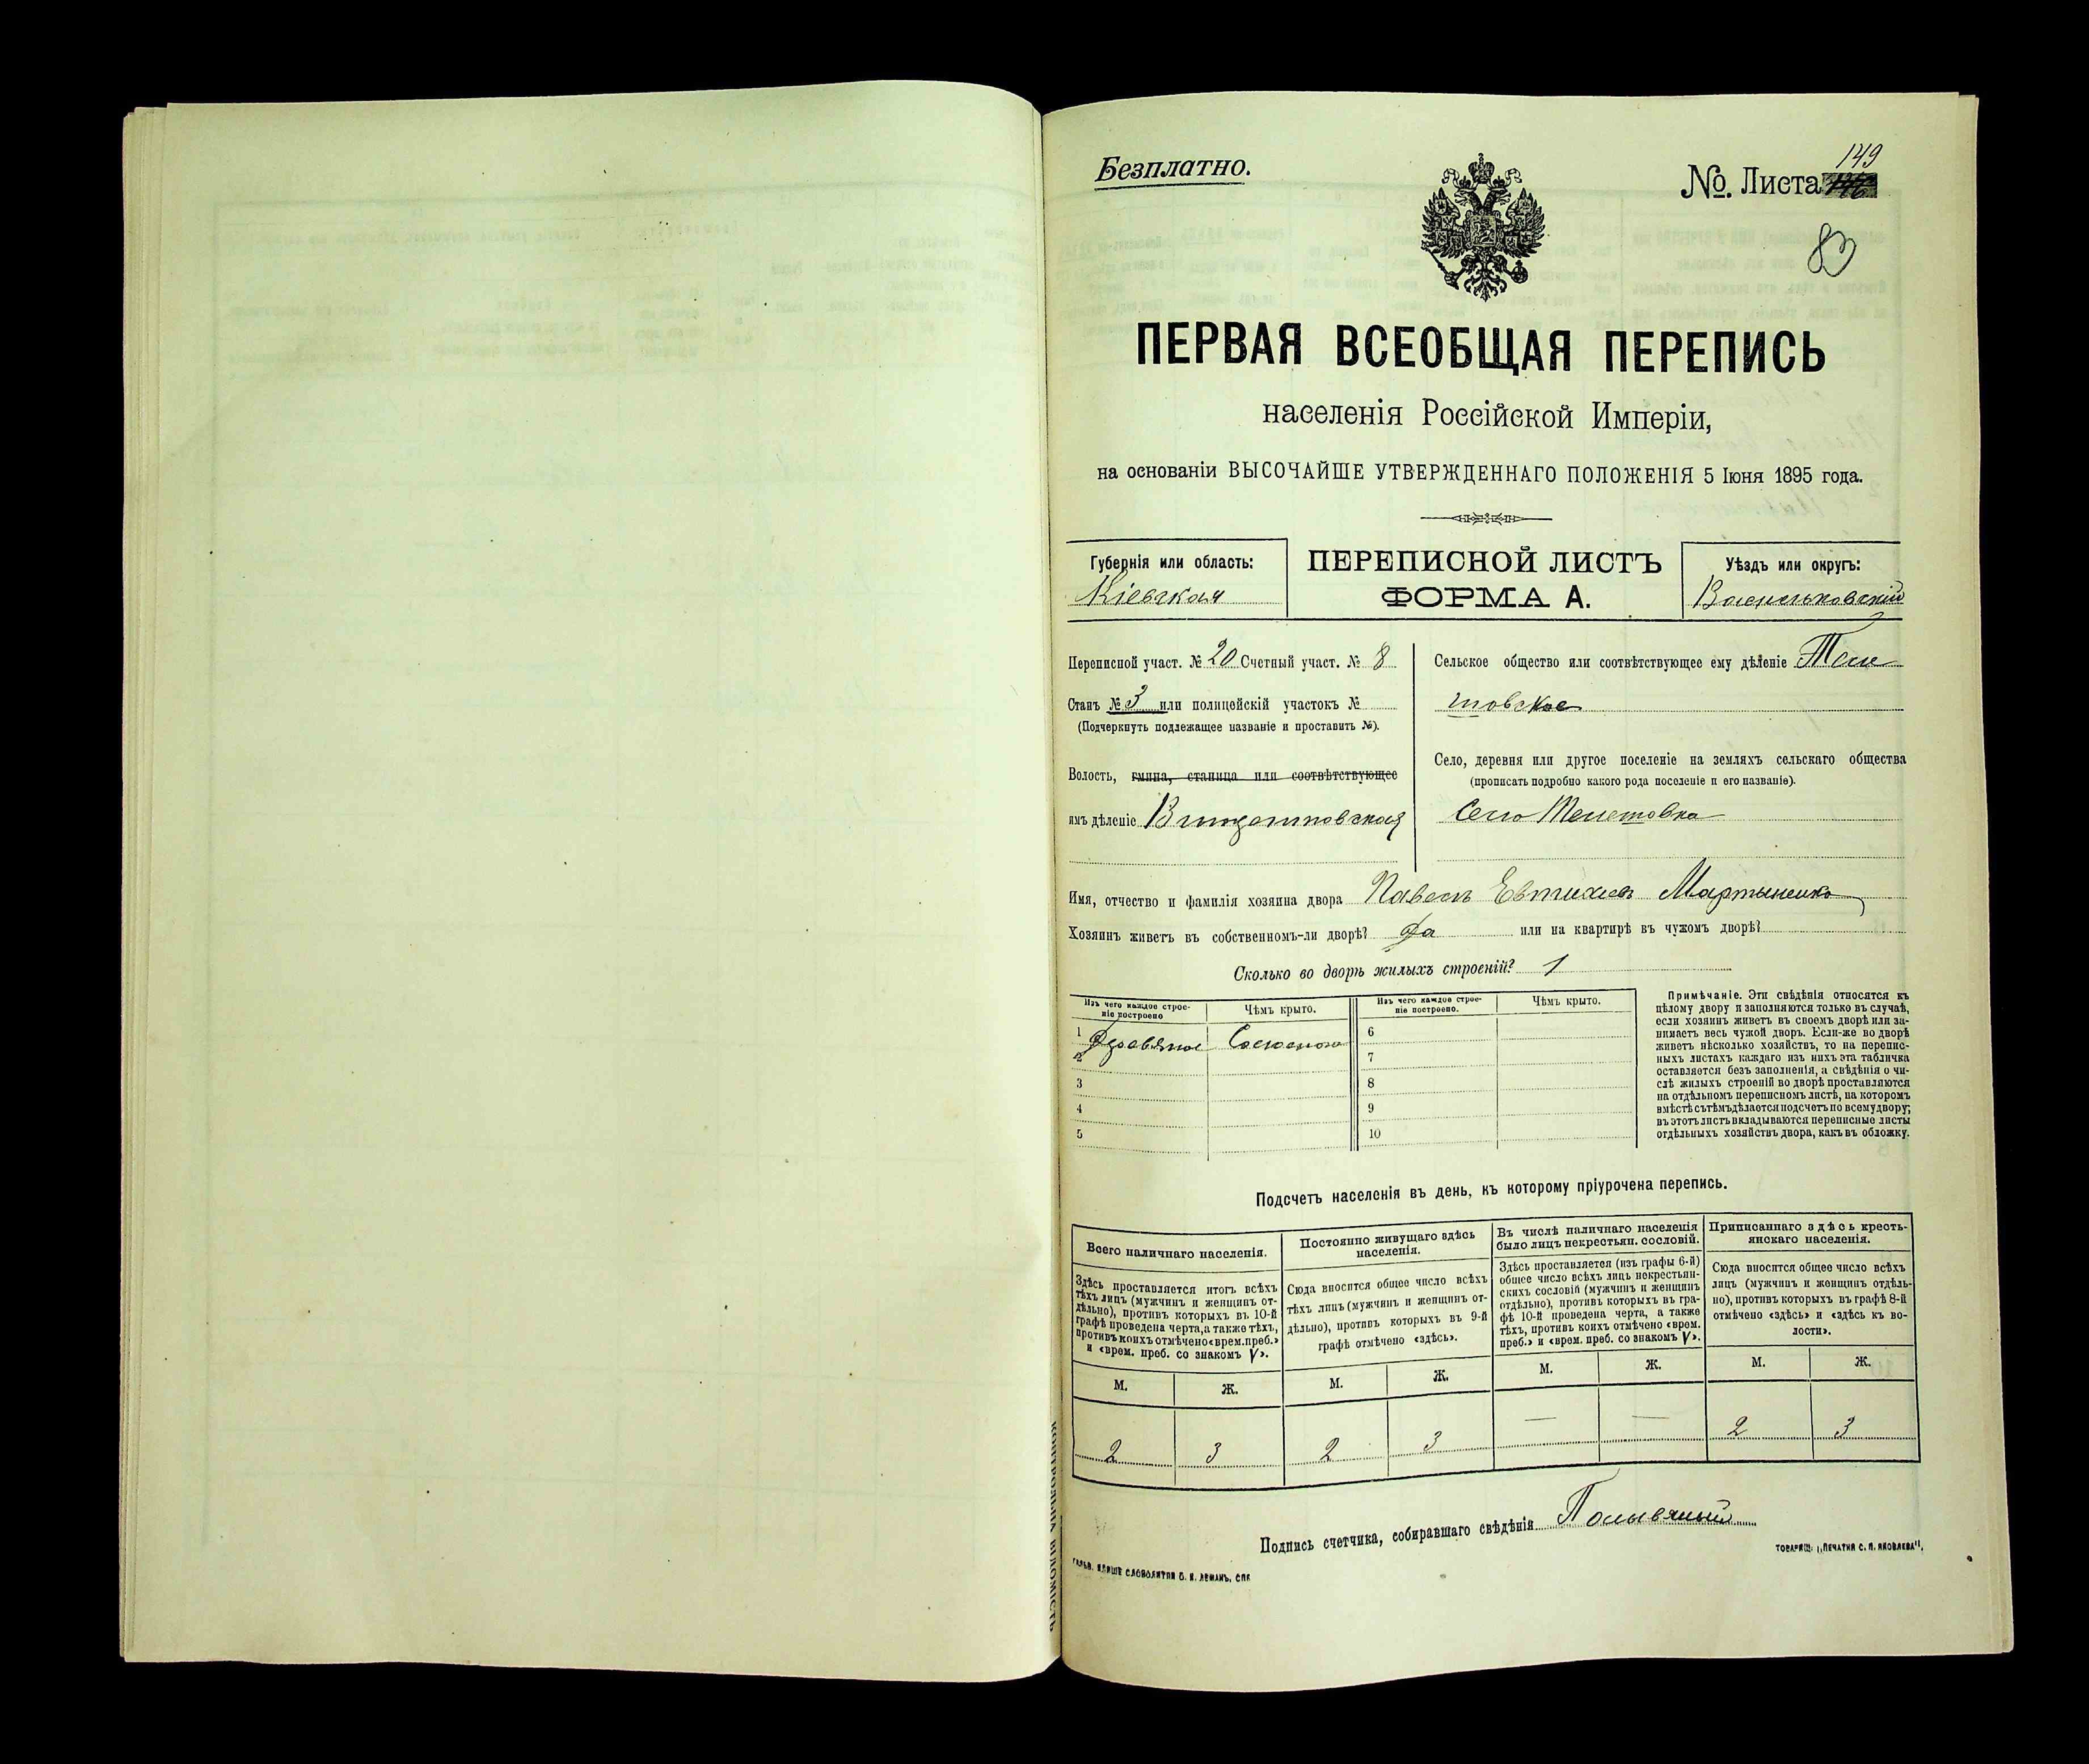 Безплатно.
149
№. Листа
83
ПЕРВАЯ ВСЕОБЩАЯ ПЕРЕПИСЬ
населенія Россійской Имперіи,
на основаніи ВЫСОЧАЙШЕ УТВЕРЖДЕННАГО ПОЛОЖЕНІЯ 5 Іюня 1895 года.
Губернія или область:
Кіевская
ПЕРЕПИСНОЙ ЛИСТЪ
ФОРМА А.
Уѣздъ или округъ:
Васильковскій
Переписной участ. № 20 Счетный участ. № 8
Станъ № 3 или полицейскій участокъ №
(Подчеркнуть подлежащее названіе и проставить №).
Волость, гмина, станица или соотвѣтствующее
имъ дѣленіе Винцентовская
Сельское общество или соотвѣтствующее ему дѣленіе Теле
шовское
Село, деревня или другое поселеніе на земляхъ сельскаго общества
(прописать подробно какого рода поселеніе и его названіе).
Село Телешовка
Имя, отчество и фамилія хозяина двора Павелъ Евтихіевъ Мартыненко
Хозяинъ живетъ въ собственномъ-ли дворѣ? Да или на квартирѣ въ чужомъ дворѣ?
Сколько во дворѣ жилыхъ строеній? 1
Изъ чего каждое строе-
ніе построено
Чѣмъ крыто.
Изъ чего каждое строе-
ніе построено.
Чѣмъ крыто.
1 Деревяное Соломою 6
2 7
3 8
4 9
5 10
Примѣчаніе. Эти свѣдѣнія относятся къ
цѣлому двору и заполняются только въ случаѣ,
если хозяинъ живетъ въ своемъ дворѣ или за-
нимаетъ весь чужой дворъ. Если-же во дворѣ
живетъ нѣсколько хозяйствъ, то на перепис-
ныхъ листахъ каждаго изъ нихъ эта табличка
оставляется безъ заполненія, а свѣдѣнія о чи-
слѣ жилыхъ строеній во дворѣ проставляются
на отдѣльномъ переписномъ листѣ, на которомъ
вмѣстѣ съ тѣмъ дѣлается подсчетъ по всему двору;
въ этотъ листъ вкладываются переписные листы
отдѣльныхъ хозяйствъ двора, какъ въ обложку.
Подсчетъ населенія въ день, къ которому пріурочена перепись.
Всего наличнаго населенія.
Здѣсь проставляется итогъ всѣхъ
тѣхъ лицъ (мужчинъ и женщинъ от-
дѣльно), противъ которыхъ въ 10-й
графѣ проведена черта, а также тѣхъ,
противъ коихъ отмѣчено «врем. преб.»
и «врем. преб. со знакомъ V».
Постоянно живущаго здѣсь
населенія.
Сюда вносится общее число всѣхъ
тѣхъ лицъ (мужчинъ и женщинъ от-
дѣльно), противъ которыхъ въ 9-й
графѣ отмѣчено «здѣсь».
Въ числѣ наличнаго населенія
было лицъ некрестьян. сословій.
Здѣсь проставляется (изъ графы 6-й)
общее число всѣхъ лицъ некрестьян-
скихъ сословій (мужчинъ и женщинъ
отдѣльно), противъ которыхъ въ гра-
фѣ 10-й проведена черта, а также
тѣхъ, противъ коихъ отмѣчено «врем.
преб.» и «врем. преб. со знакомъ V».
Приписаннаго здѣсь кресть-
янскаго населенія.
Сюда вносится общее число всѣхъ
лицъ (мужчинъ и женщинъ отдѣль-
но), противъ которыхъ въ графѣ 8-й
отмѣчено «здѣсь» и «здѣсь къ во-
лости».
М. Ж. М. Ж. М. Ж. М. Ж.
2 3 2 3 — — 2 3
Подпись счетчика, собиравшаго свѣдѣнія Полывяный
ГАЛЬВ. КЛИШЕ СЛОВОЛИТНИ О. И. ЛЕМАНЪ, СПБ
ТОВАРИЩ. „ПЕЧАТНЯ С. П. ЯКОВЛЕВА“.